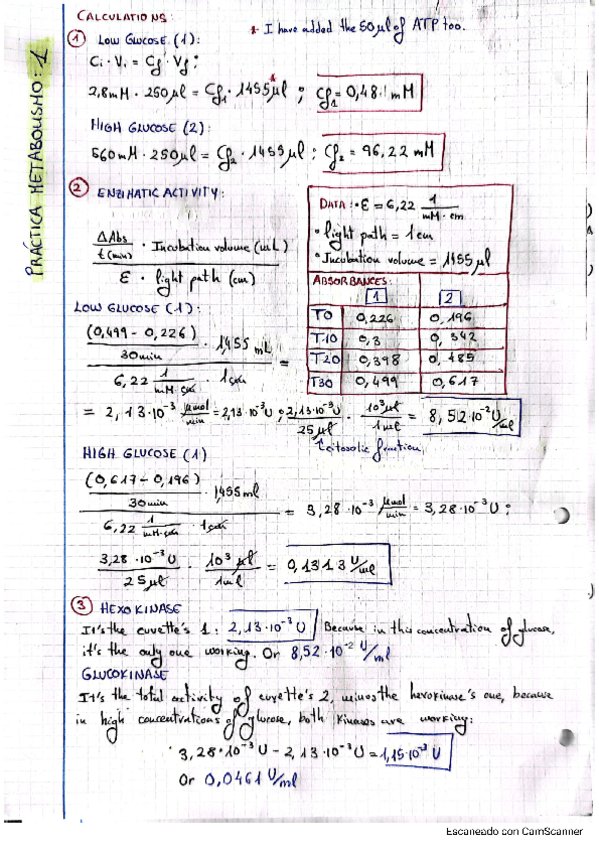 PRÁCTICA METABOLISMO: 1
CALCULATIONS:
* I have added the 50 µl of ATP too.
① LOW GLUCOSE (1):
Ci · Vi = Cf · Vf ;
2,8 mM · 250 µl = Cf1 · 1455 µl* ; Cf1 = 0,481 mM
HIGH GLUCOSE (2):
560 mM · 250 µl = Cf2 · 1455 µl ; Cf2 = 96,22 mM
② ENZIMATIC ACTIVITY:
ΔAbs / t(min) · Incubation volume (mL)
ε · light path (cm)
DATA: • ε = 6,22 1 / mM · cm
• light path = 1cm
• Incubation volume = 1455 µl
ABSORBANCES:
1 2
T0 0,226 0,196
T10 0,3 0,342
T20 0,398 0,485
T30 0,499 0,617
LOW GLUCOSE (1):
(0,499 - 0,226) / 30min · 1,455 mL =
6,22 1 / mM · cm · 1cm
= 2,13·10⁻³ µmol/min = 2,13·10⁻³ U ; 2,13·10⁻³ U / 25 µl · 10³ µl / 1 ml = 8,52·10⁻² U/ml
↑ citosolic fraction
HIGH GLUCOSE (1)
(0,617 - 0,196) / 30min · 1,455 ml
6,22 1 / mM·cm · 1cm
= 3,28 · 10⁻³ µmol/min = 3,28 · 10⁻³ U ;
3,28 · 10⁻³ U / 25 µl · 10³ µl / 1ml = 0,1313 U/ml
③ HEXOKINASE
It's the cuvette's 1 : 2,13·10⁻³ U Because in this concentration of glucose,
it's the only one working. Or 8,52·10⁻² U/ml
GLUCOKINASE
It's the total activity of cuvette's 2, minus the hexokinase's one, because
in high concentrations of glucose, both kinases are working:
3,28·10⁻³ U - 2,13·10⁻³ U = 1,15·10⁻³ U
Or 0,0461 U/ml
Escaneado con CamScanner